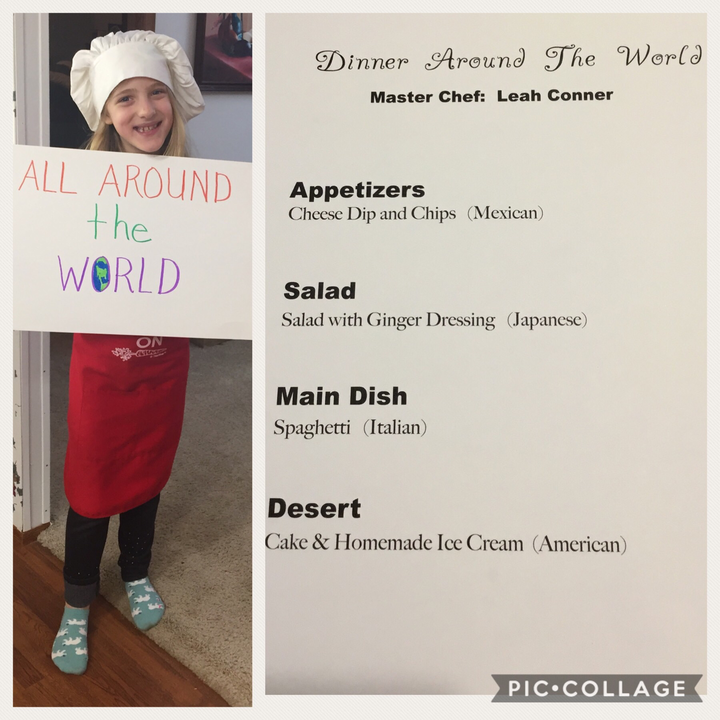 ALL AROUND
the
WORLD
ON
Dinner Around The World
Master Chef: Leah Conner
Appetizers
Cheese Dip and Chips (Mexican)
Salad
Salad with Ginger Dressing (Japanese)
Main Dish
Spaghetti (Italian)
Desert
Cake & Homemade Ice Cream (American)
PIC•COLLAGE